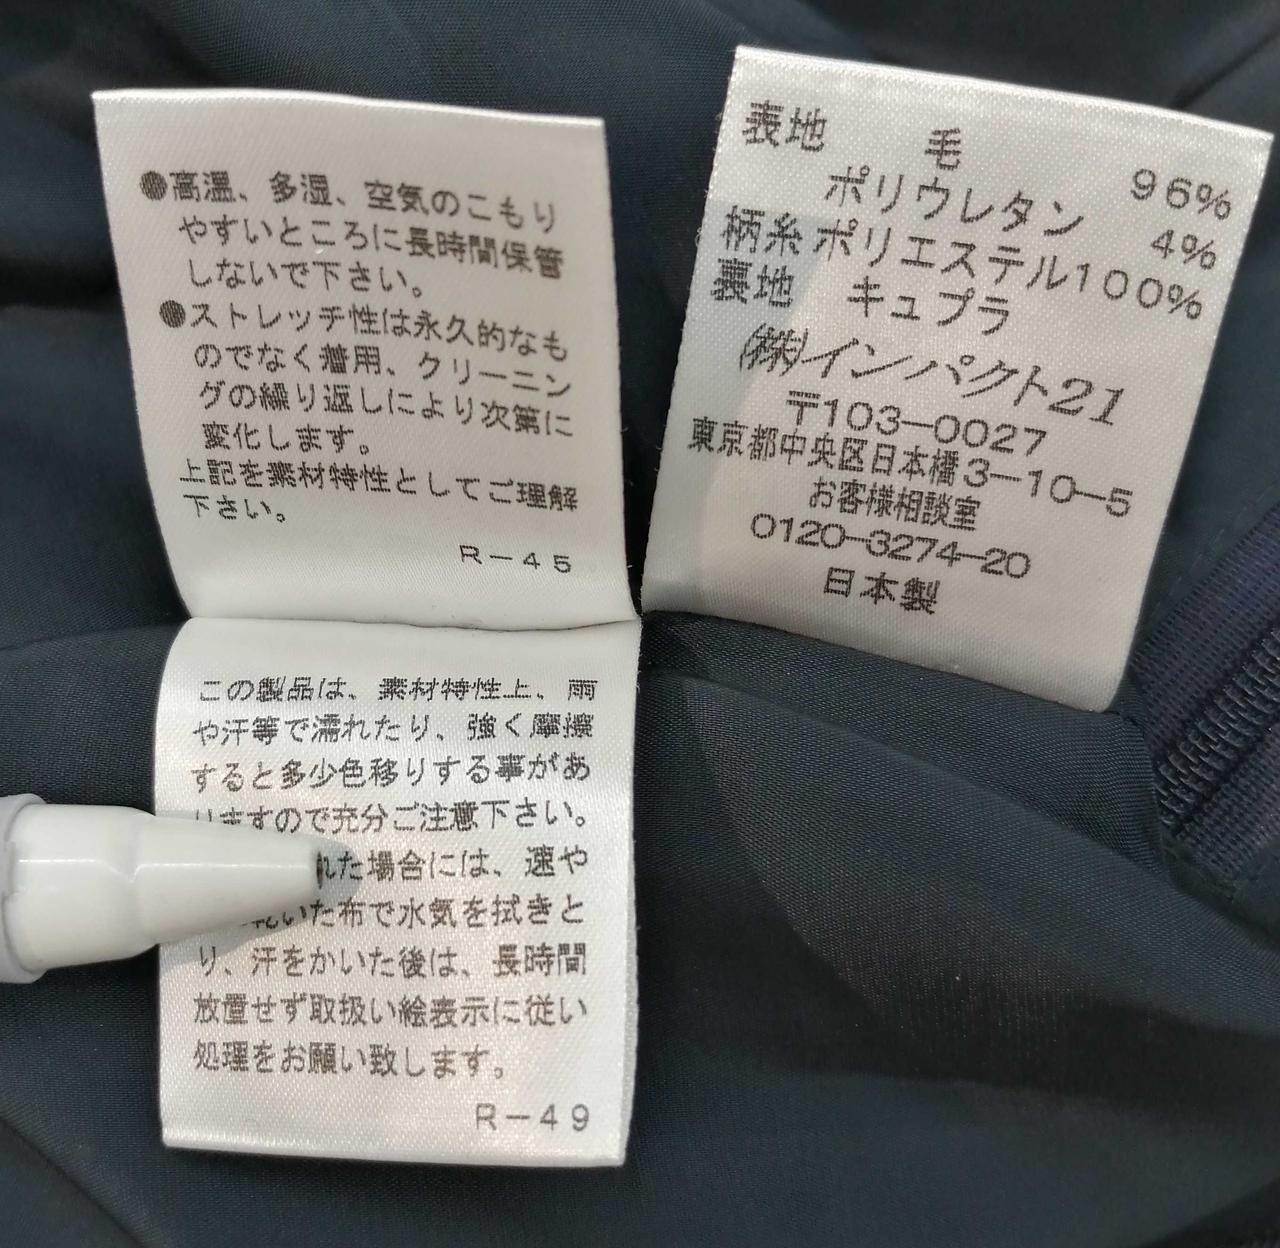 ●高温、多湿、空気のこもり
やすいところに長時間保管
しないで下さい。
●ストレッチ性は永久的なも
のでなく着用、クリーニン
グの繰り返しにより次第に
変化します。
上記を素材特性としてご理解
下さい。
R-45
この製品は、素材特性上、雨
や汗等で濡れたり、強く摩擦
すると多少色移りする事があ
りますので充分ご注意下さい。
れた場合には、速や
乾いた布で水気を拭きと
り、汗をかいた後は、長時間
放置せず取扱い絵表示に従い
処理をお願い致します。
R-49
表地 毛 96%
ポリウレタン 4%
柄糸 ポリエステル100%
裏地 キュプラ
(株)インパクト21
〒103-0027
東京都中央区日本橋3-10-5
お客様相談室
0120-3274-20
日本製